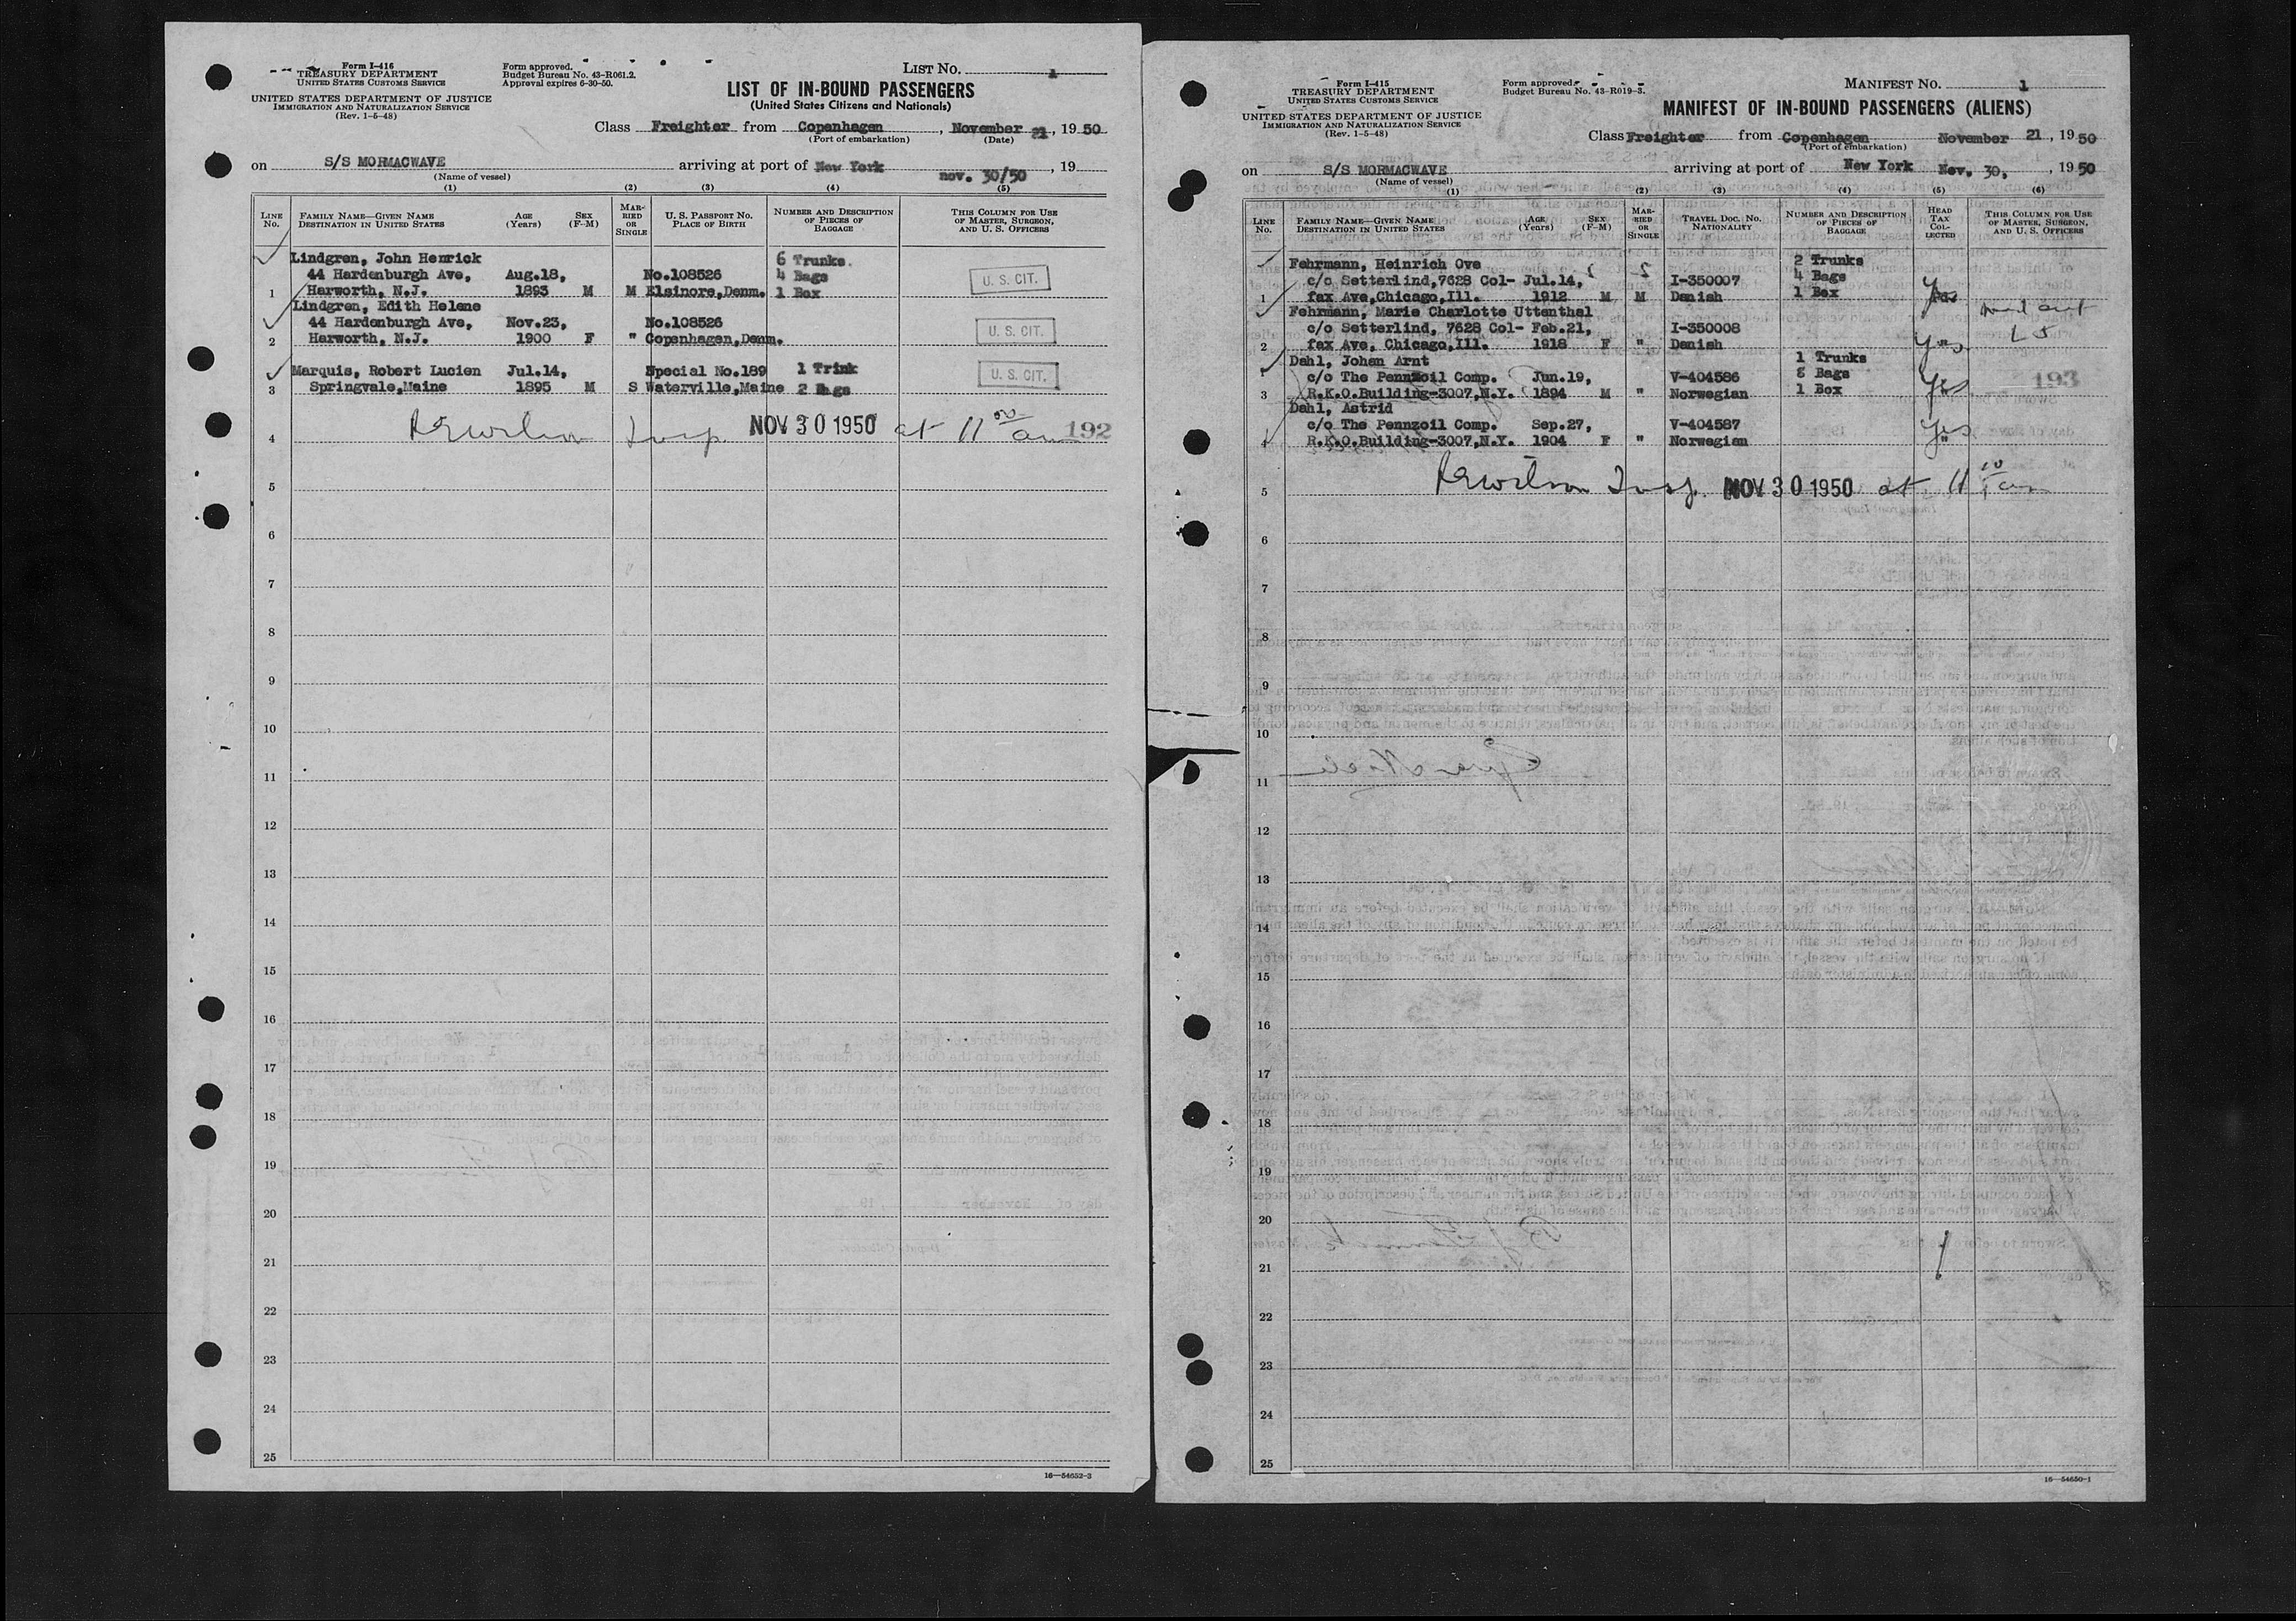 Form I-416
TREASURY DEPARTMENT
UNITED STATES CUSTOMS SERVICE
UNITED STATES DEPARTMENT OF JUSTICE
IMMIGRATION AND NATURALIZATION SERVICE
(Rev. 1-5-48)
Form approved.
Budget Bureau No. 43-R061.2.
Approval expires 6-30-50.
LIST NO. 1
LIST OF IN-BOUND PASSENGERS
(United States Citizens and Nationals)
Class Freighter from Copenhagen, November 21, 19 50
(Port of embarkation) (Date)
on S/S MORMACWAVE arriving at port of New York nov. 30/50, 19
(Name of vessel)
(1) (2) (3) (4) (5)
LINE NO. FAMILY NAME—GIVEN NAME DESTINATION IN UNITED STATES AGE (Years) SEX (F-M) MARRIED OR SINGLE U. S. PASSPORT NO. PLACE OF BIRTH NUMBER AND DESCRIPTION OF PIECES OF BAGGAGE THIS COLUMN FOR USE OF MASTER, SURGEON, AND U. S. OFFICERS
Lindgren, John Henrick 6 Trunks.
44 Hardenburgh Ave, Aug.18, No.108526 4 Bags U. S. CIT.
1 Harworth, N.J. 1893 M M Elsinore,Denm. 1 Box
Lindgren, Edith Helene
44 Hardenburgh Ave, Nov.23, No.108526 U. S. CIT.
2 Harworth, N.J. 1900 F " Copenhagen,Denm.
Marquis, Robert Lucien Jul.14, Special No.189 1 Trink U. S. CIT.
3 Springvale,Maine 1895 M S Waterville,Maine 2 Bags
4 NOV 30 1950 at 11 am 192
5
6
7
8
9
10
11
12
13
14
15
16
17
18
19
20
21
22
23
24
25
16—54652-3
Form I-415
TREASURY DEPARTMENT
UNITED STATES CUSTOMS SERVICE
UNITED STATES DEPARTMENT OF JUSTICE
IMMIGRATION AND NATURALIZATION SERVICE
(Rev. 1-5-48)
Form approved.
Budget Bureau No. 43-R019-3.
MANIFEST NO. 1
MANIFEST OF IN-BOUND PASSENGERS (ALIENS)
Class Freighter from Copenhagen November 21, 19 50
(Port of embarkation)
on S/S MORMACWAVE arriving at port of New York Nov. 30, , 19 50
(Name of vessel)
(1) (2) (3) (4) (5) (6)
LINE NO. FAMILY NAME—GIVEN NAME DESTINATION IN UNITED STATES AGE (Years) SEX (F-M) MARRIED OR SINGLE TRAVEL DOC. NO. NATIONALITY NUMBER AND DESCRIPTION OF PIECES OF BAGGAGE HEAD TAX COLLECTED THIS COLUMN FOR USE OF MASTER, SURGEON, AND U. S. OFFICERS
Fehrmann, Heinrich Ove 2 Trunks
c/o Setterlind,7628 Col- Jul.14, I-350007 4 Bags
1 fax Ave,Chicago,Ill. 1912 M M Danish 1 Box Yes
Fehrmann, Marie Charlotte Uttenthal
c/o Setterlind, 7628 Col- Feb.21, I-350008
2 fax Ave, Chicago,Ill. 1918 F " Danish Yes
Dahl, Johan Arnt 1 Trunks
c/o The Pennzoil Comp. Jun.19, V-404586 8 Bags Yes 193
3 R.K.O.Building-3007,N.Y. 1894 M " Norwegian 1 Box
Dahl, Astrid
c/o The Pennzoil Comp. Sep.27, V-404587 Yes
4 R.K.O.Building-3007,N.Y. 1904 F " Norwegian "
5 REWilson Insp. NOV 30 1950 at 11 10 am
6
7
8
9
10
11
12
13
14
15
16
17
18
19
20
21
22
23
24
25
16—54650-1